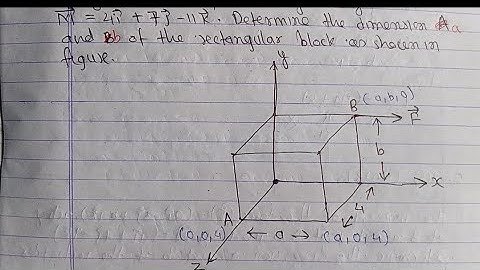 M⃗ = 2i⃗ + 7j⃗ - 11k⃗. Determine the dimension a
and b of the rectangular block as shown in
figure.
y
B (a, b, 0)
F⃗
b
x
4
A
(0, 0, 4) ← a → (a, 0, 4)
Z